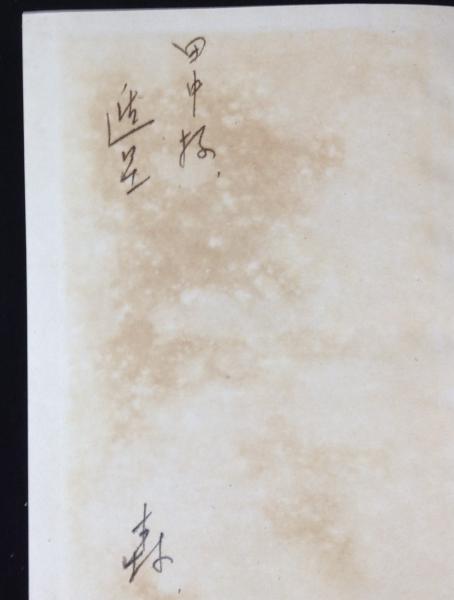 田中様
進呈